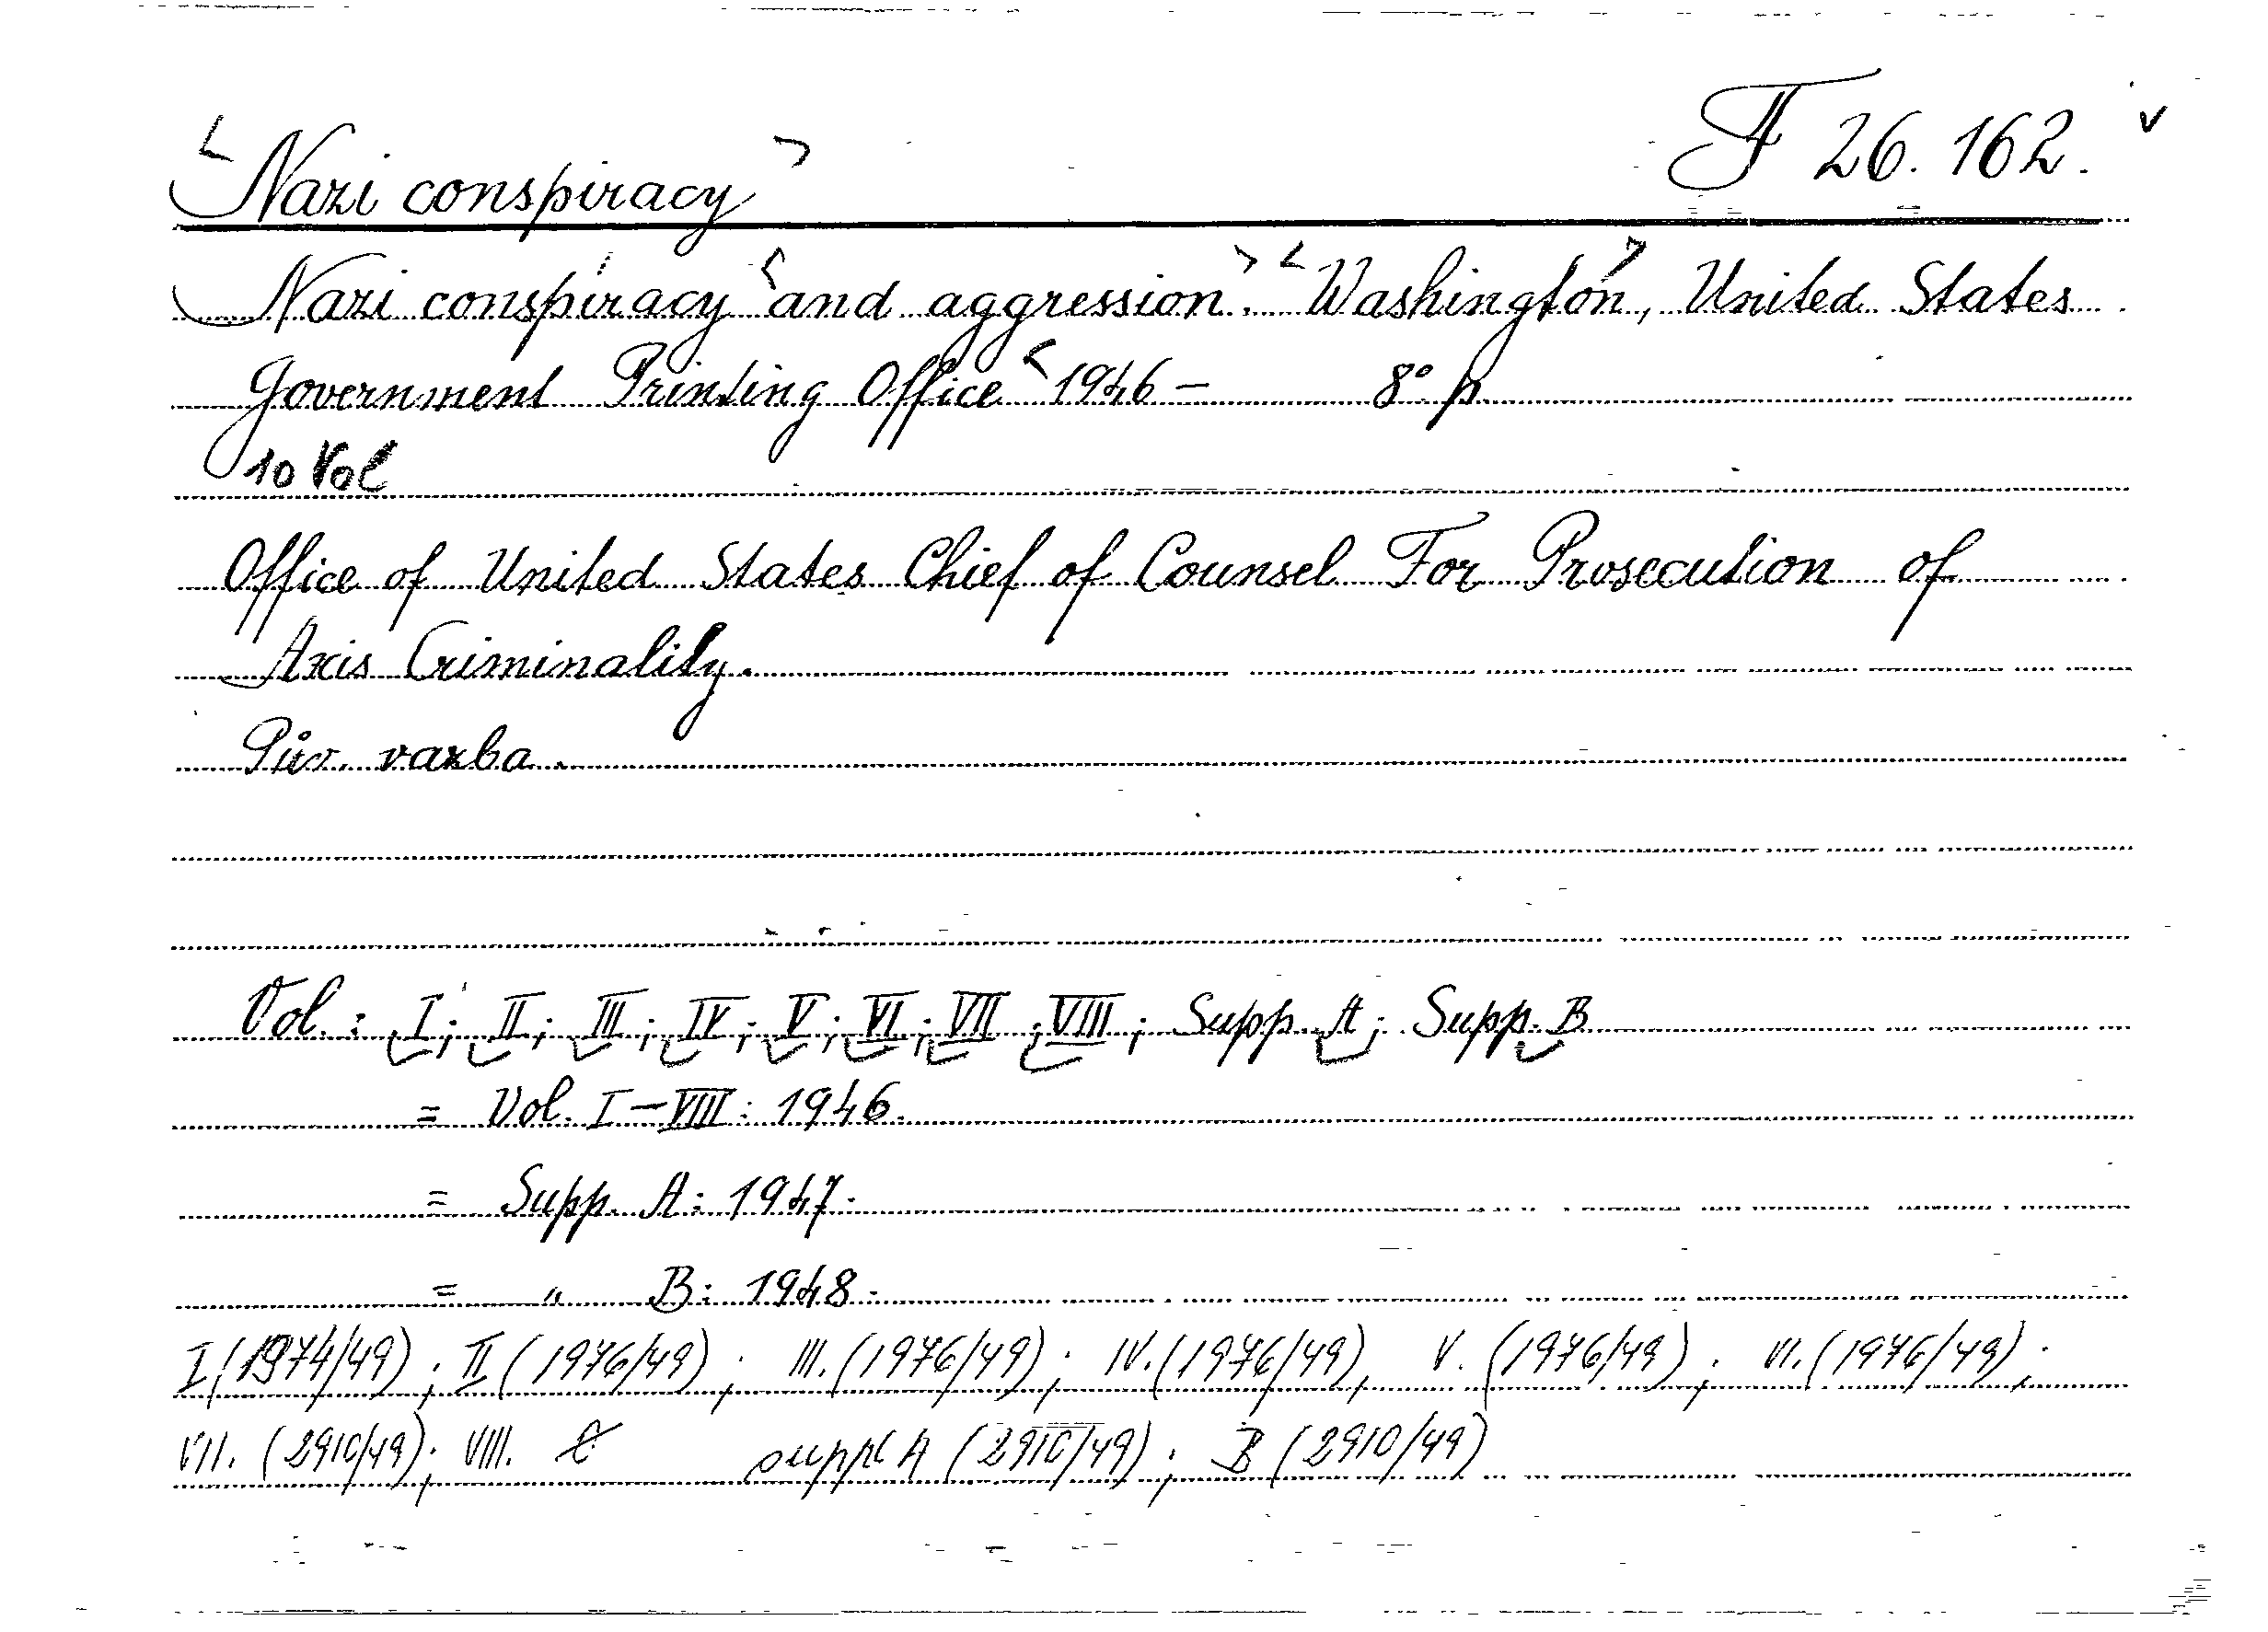 Nazi conspiracy F 26.162.
Nazi conspiracy and aggression. Washington, United States
Government Printing Office 1946 – 8° p.
10 Vol
Office of United States Chief of Counsel For Prosecution of
Axis Criminality.
Pův. vazba.
Vol.: I; II; III; IV; V; VI; VII; VIII; Supp. A; Supp. B
= Vol. I–VIII: 1946.
= Supp. A: 1947.
= „ B: 1948.
I (1974/49); II (1976/49); III. (1976/49); IV. (1976/49), V. (1976/49); VI. (1976/49);
VII. (2910/49); VIII. suppl A (2910/49); B (2910/49)